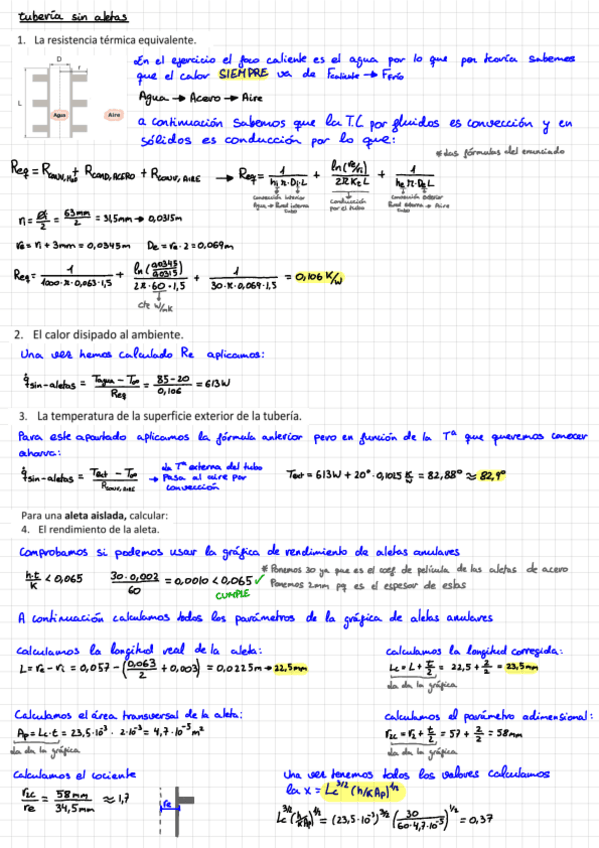 tubería sin aletas
1. La resistencia térmica equivalente.
D
r
L
Agua
Aire
En el ejercicio el foco caliente es el agua por lo que por teoría sabemos
que el calor SIEMPRE va de Fcaliente → Frío
Agua → Acero → Aire
a continuación sabemos que la T.C por fluidos es convección y en
sólidos es conducción por lo que:
* las fórmulas del enunciado
Req = Rconv,H2O + Rcond,acero + Rconv,aire → Req = 1/(hi·π·Di·L) + ln(re/ri)/(2πKtL) + 1/(he·π·De·L)
Convección interior
Agua → Pared interna
tubo
Conducción
por el tubo
Convección exterior
Pared externa → Aire
tubo
ri = Di/2 = 63mm/2 = 31,5mm → 0,0315m
re = ri + 3mm = 0,0345m De = re·2 = 0,069m
Req = 1/(1000·π·0,063·1,5) + ln(0,0345/0,0315)/(2π·60·1,5) + 1/(30·π·0,069·1,5) = 0,106 K/W
cte W/mK
2. El calor disipado al ambiente.
Una vez hemos calculado Re aplicamos:
q̇sin-aletas = (Tagua − T∞)/Req = (85−20)/0,106 = 613W
3. La temperatura de la superficie exterior de la tubería.
Para este apartado aplicamos la fórmula anterior pero en función de la Tª que queremos conocer
ahora:
q̇sin-aletas = (Text − T∞)/Rconv,aire → la Tª externa del tubo
pasa al aire por
convección
Text = 613W + 20° · 0,1025 K/W = 82,88° ≈ 82,9°
Para una aleta aislada, calcular:
4. El rendimiento de la aleta.
Comprobamos si podemos usar la gráfica de rendimiento de aletas anulares
h·t/K < 0,065 30·0,002/60 = 0,0010 < 0,065 ✓
CUMPLE
* Ponemos 30 ya que es el coef de película de las aletas de acero
Ponemos 2mm pq es el espesor de estas
A continuación calculamos todos los parámetros de la gráfica de aletas anulares
Calculamos la longitud real de la aleta:
L = re − ri = 0,057 − (0,063/2 + 0,003) = 0,0225m → 22,5mm
Calculamos la longitud corregida:
Lc = L + t/2 = 22,5 + 2/2 = 23,5mm
la da la gráfica
Calculamos el área transversal de la aleta:
Ap = Lc·t = 23,5·10⁻³ · 2·10⁻³ = 4,7·10⁻⁵ m²
la da la gráfica
Calculamos el parámetro adimensional:
r2c = r2 + t/2 = 57 + 2/2 = 58mm
la da la gráfica
Calculamos el cociente
r2c/re = 58mm/34,5mm ≈ 1,7
re
Una vez tenemos todos los valores calculamos
la x = Lc^3/2 (h/KAp)^1/2
Lc^3/2 (h/KAp)^1/2 = (23,5·10⁻³)^3/2 (30/(60·4,7·10⁻⁵))^1/2 = 0,37